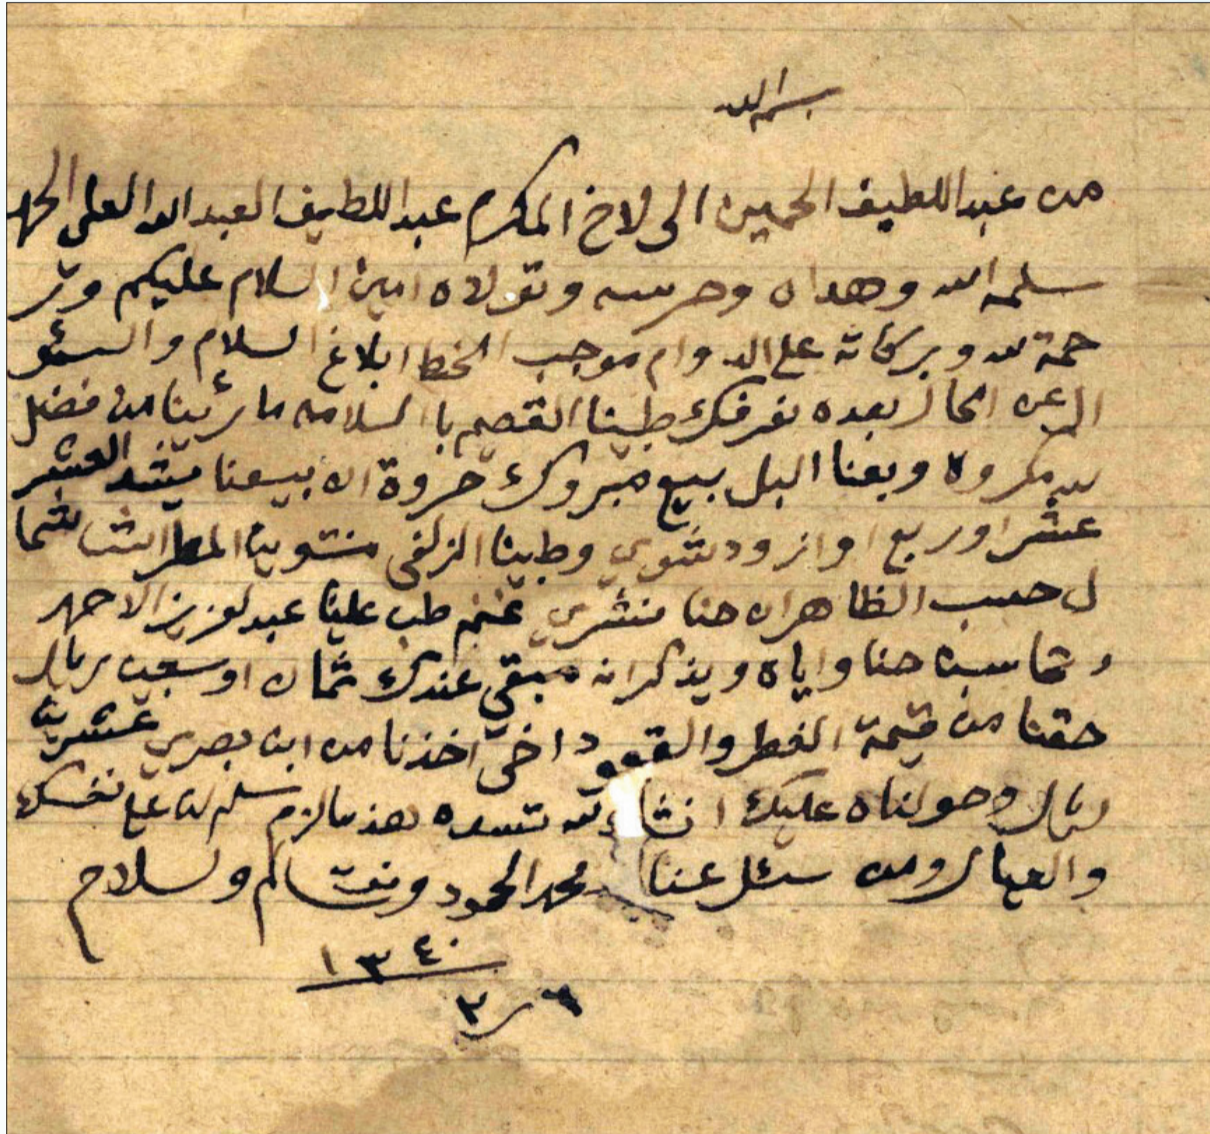 بسم الله
من عبد اللطيف الحمين الى لاخ المكرم عبد اللطيف العبد الله العلي الحمد
سلمه الله وهداه وحرسه وتولاه امين السلام عليكم ور
حمة لله وبركاته على الدوام موجب الخط ابلاغ السلام والسئو
ال عن الحال بعده نعرفك طبينا القصيم بالسلامه ما رئينا من فضل
لله مكروه وبعنا البل بيع مبروك حروة ان بيعنا العشر
عشر اوربع اوازود شوي وطبينا الزلفى المطر
ل حسب الظاهر ان حنا منشري غنم طب علينا عبد لعزيز الاحمد
وتحاسبنا حنا واياه ويذكر انه مبقي عندك ثمان اوسبعين ريال
حقنا من قيمة والقعود اخي اخذنا من ابن بصري عشرين
ريال وحولناه عليك انشالله تسده هذ مالزم سلم لنا على نفسك
والعيال ومن سئل عنا محمد الحمود ونتم سالم ولسلام
١٣٤٠
٦ ر ٣